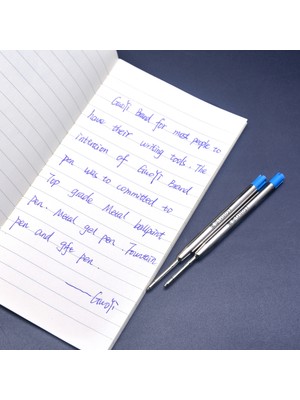 GuoYi Band for most people to
have their writing tools. The
intension of GuoYi Band
pen was to committed to
Top grade Metal ballpoint
pen. Metal gel pen. Fountain
pen and gift pen.
—— GuoYi